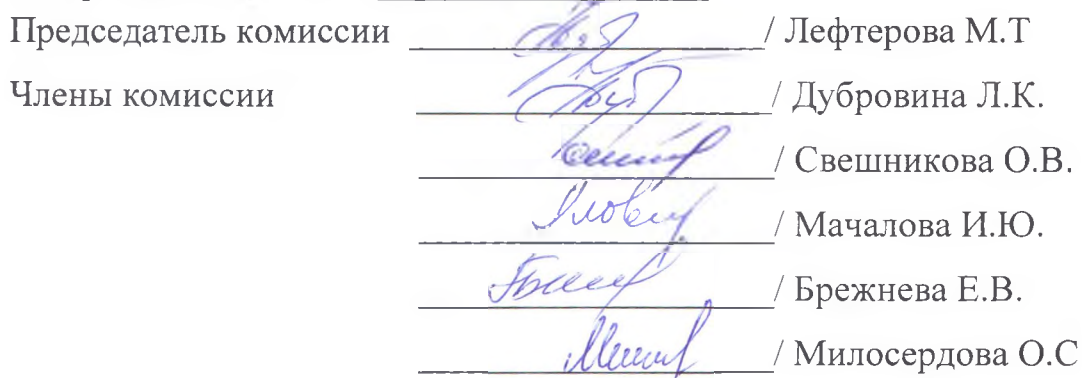 Председатель комиссии / Лефтерова М.Т
Члены комиссии / Дубровина Л.К.
/ Свешникова О.В.
/ Мачалова И.Ю.
/ Брежнева Е.В.
/ Милосердова О.С